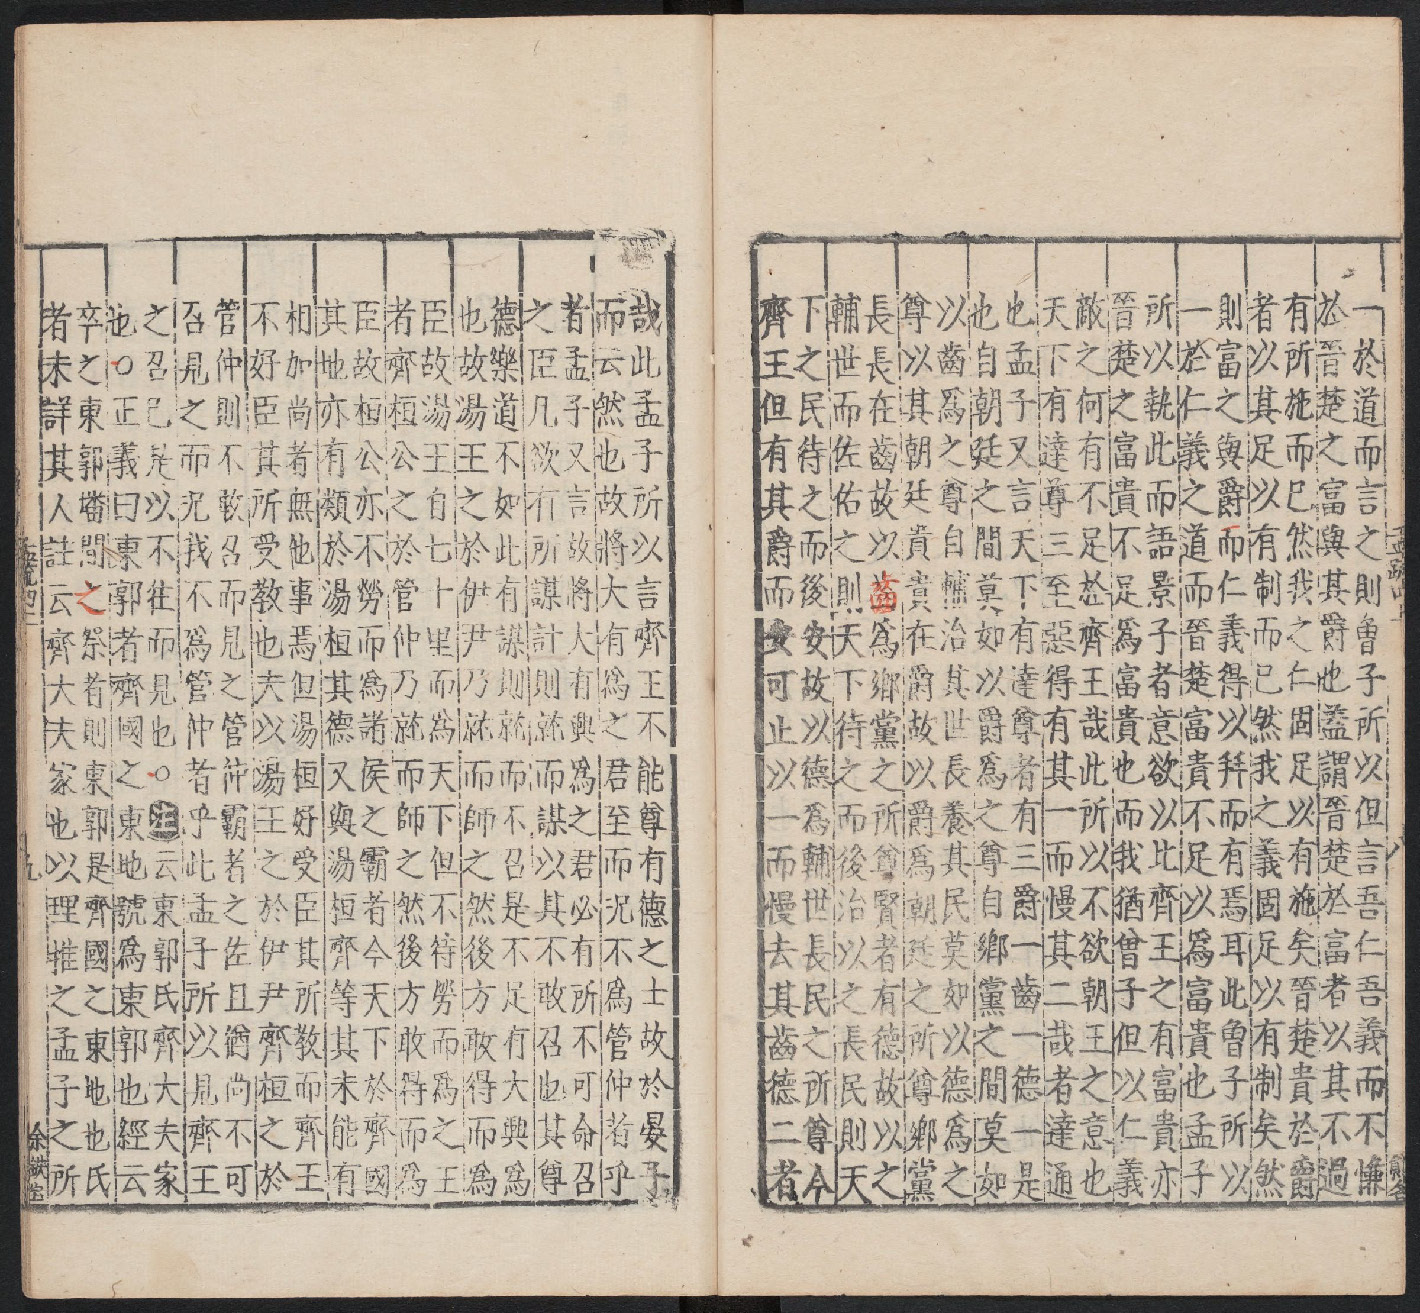 一於道而言之則魯子所以但言吾仁吾義而不慊
於晉楚之富與其爵也蓋謂晉楚於富者以其不過
有所施而已然我之仁固足以有施矣晉楚貴於爵
者以其足以有制而已然我之義固足以有制矣然
則富之與爵而仁義得以并而有焉耳此魯子所以
一於仁義之道而晉楚富貴不足以爲富貴也孟子
所以執此而語景子者意欲以比齊王之有富貴亦
晉楚之富貴不足爲富貴也而我猶曾子但以仁義
敵之何有不足於齊王哉此所以不欲朝王之意也
天下有達尊三至惡得有其一而慢其二哉者達通
也孟子又言天下有達尊者有三爵一齒一德一是
也自朝廷之間莫如以爵爲之尊自鄉黨之間莫如
以齒爲之尊自輔治其世長養其民莫如以德爲之
尊以其朝廷貴貴在爵故以爵爲朝廷之所尊鄉黨
長長在齒故以齒爲鄉黨之所尊賢者有德故以之
輔世而佐佑之則天下待之而後治以之長民則天
下之民待之而後安故以德爲輔世長民之所尊今
齊王但有其爵而安可止以一而慢去其齒德二者
哉此孟子所以言齊王不能尊有德之士故於晏子
而云然也故將大有爲之君至而況不爲管仲者乎
者孟子又言故將大有興爲之君必有所不可命召
之臣凡欲有所謀計則就而謀以其不敢召也其尊
德樂道不如此有謀則就而不召是不足有大興爲
也故湯王之於伊尹乃就而師之然後方敢得而爲
臣故湯王自七十里而爲天下但不待勞而爲之王
者齊桓公之於管仲乃就而師之然後方敢得而爲
臣故桓公亦不勞而爲諸侯之霸者今天下於齊國
其地亦有類於湯桓其德又與湯桓齊等其未能有
相加尚者無他事焉但湯桓好受臣其所教而齊王
不好臣其所受教也夫以湯王之於伊尹齊桓之於
管仲則不敢召而見之管仲霸者之佐且猶尚不可
召見之而況我不爲管仲者乎此孟子所以見齊王
之召己是以不往而見也○注云東郭氏齊大夫家
也○正義曰東郭者齊國之東地號爲東郭也經云
卒之東郭墦間之祭者則東郭是齊國之東地也氏
者未詳其人註云齊大夫家也以理推之孟子之所